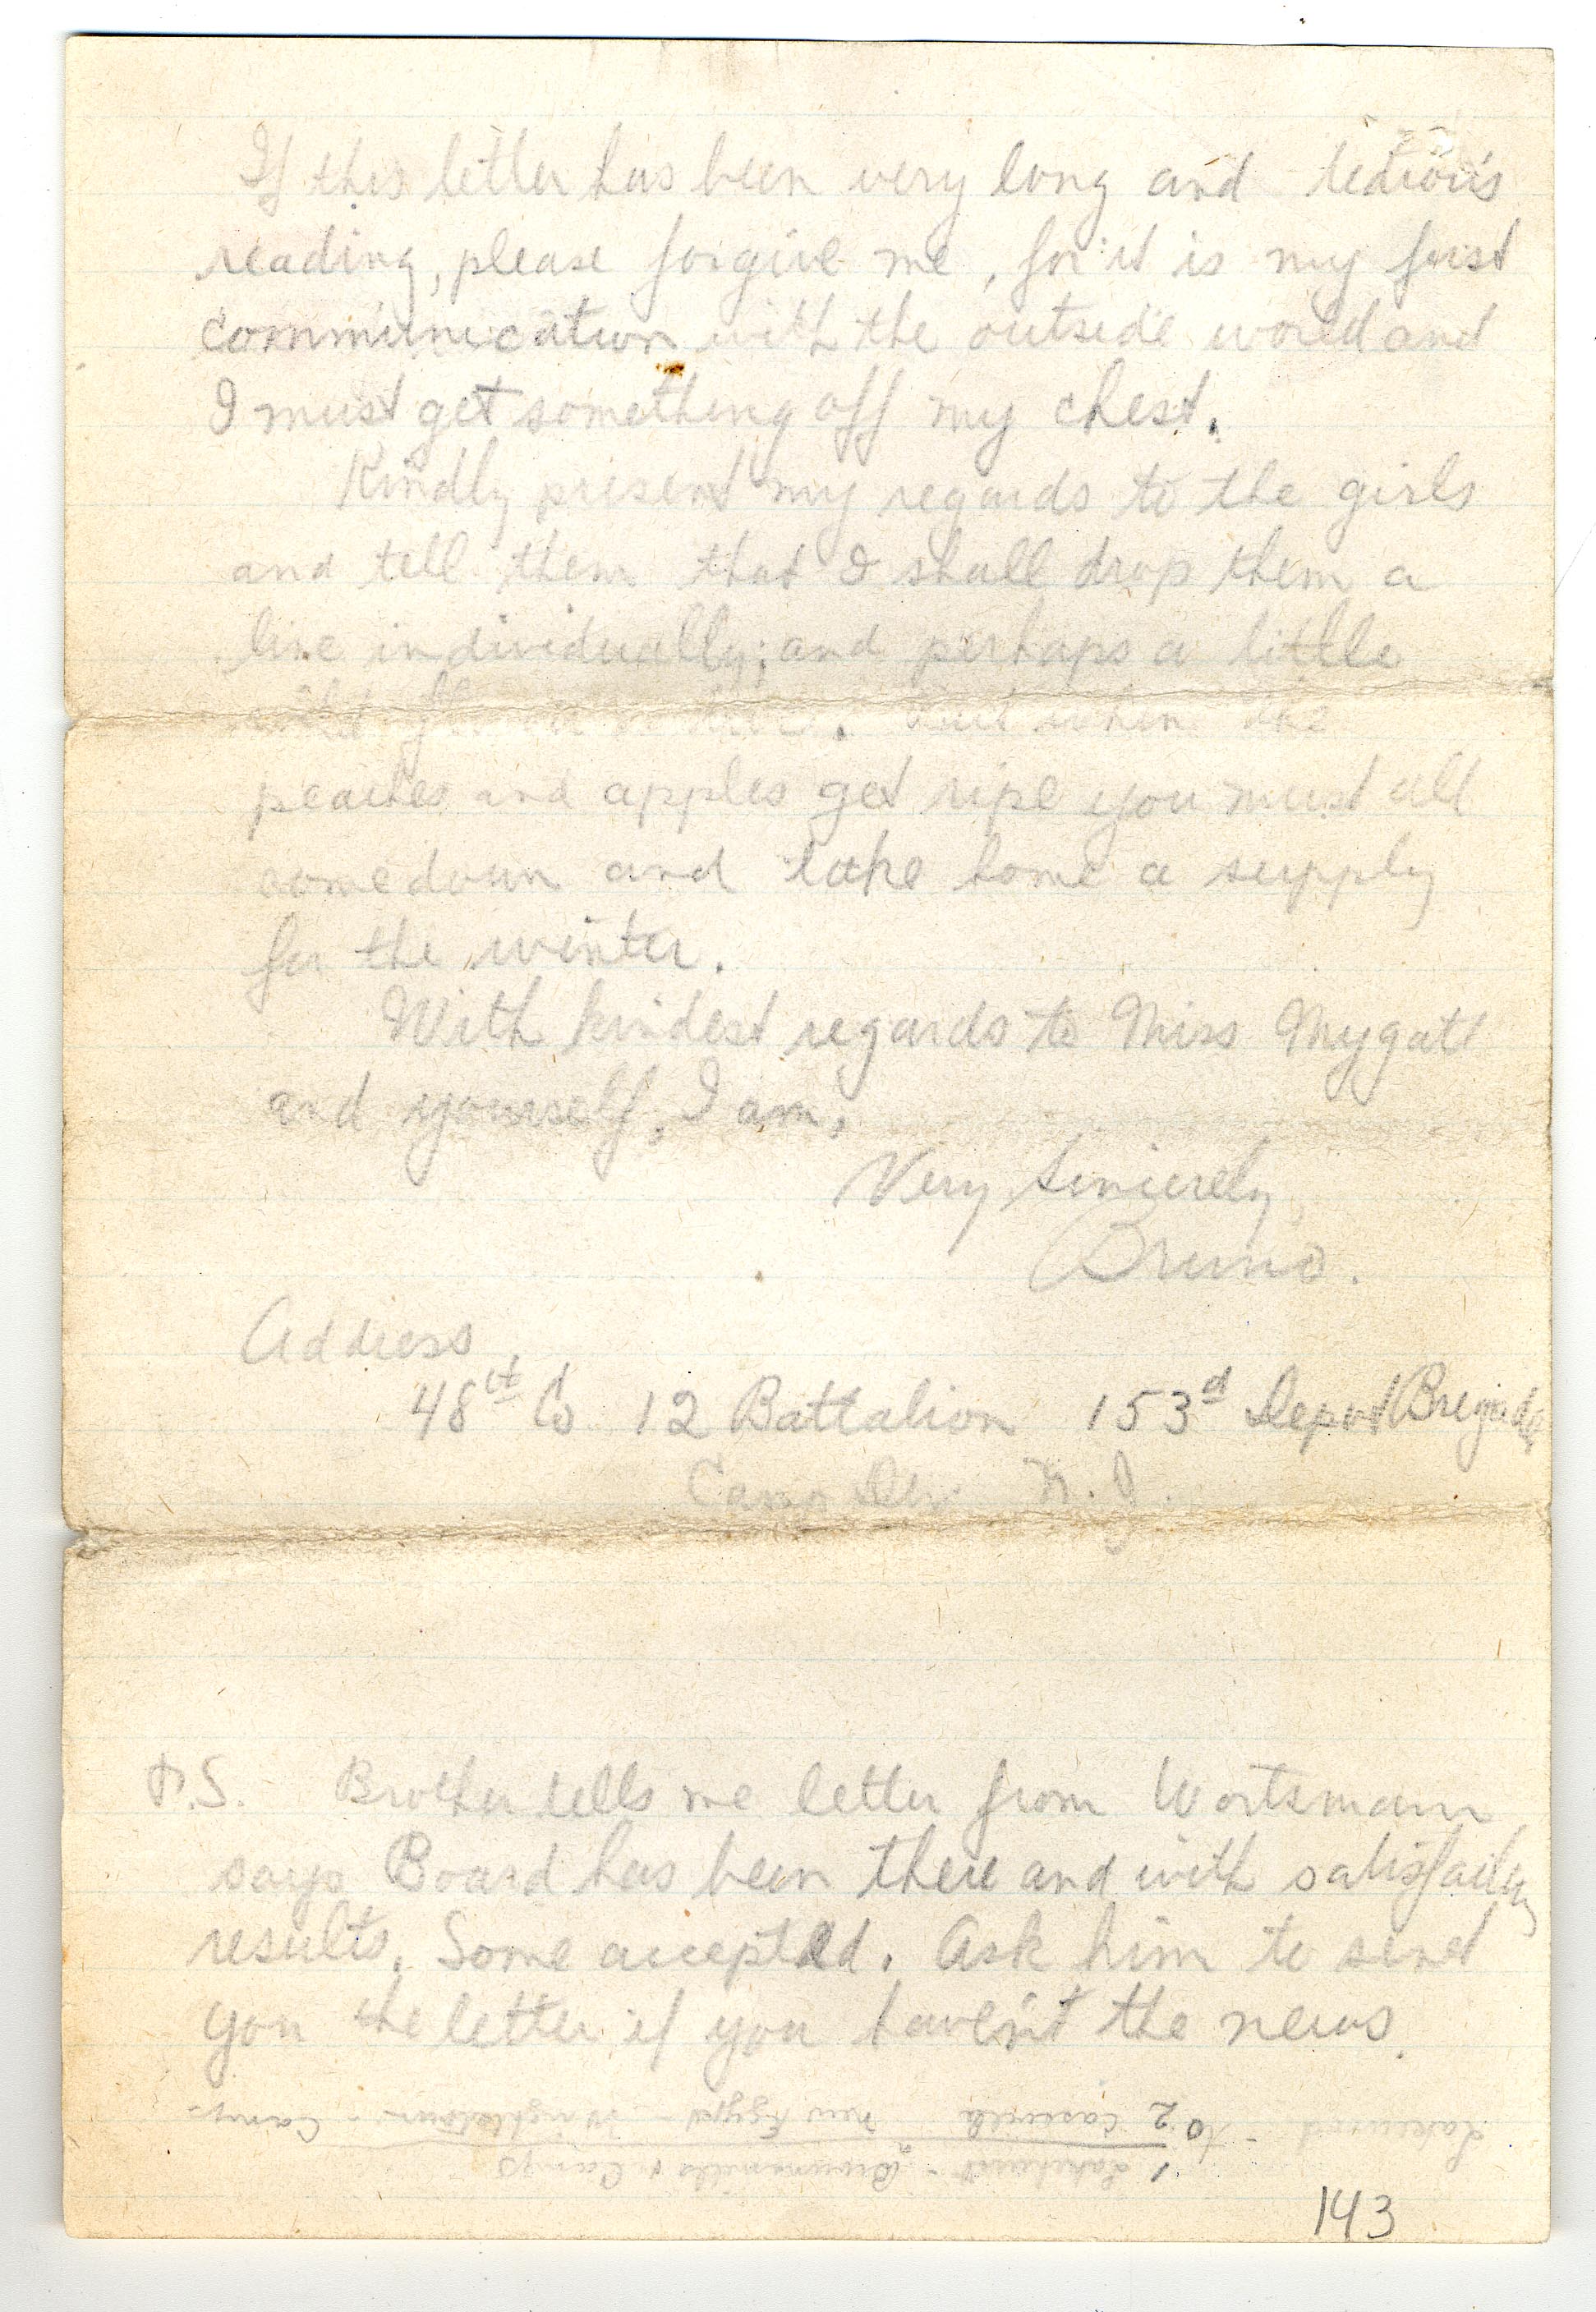 If this letter has been very long and tedious
reading, please forgive me, for it is my first
communication with the outside world and
I must get something off my chest.
Kindly present my regards to the girls
and tell them that I shall drop them a
line individually; and perhaps a little
wild . But when the
peaches and apples get ripe you must all
come down and take home a supply
for the winter.
With kindest regards to Miss Mygatt
and yourself, I am,
Very Sincerely,
Bruno.
Address
48th Co 12 Battalion 153d Depot Brigade
Camp Dix N.J.
P.S. Brother tells me letter from Wortsmann
says Board has been there and with satisfactory
results. Some accepted. Ask him to send
you the letter if you haven't the news.
1. Lakehurst - Brownsmills & Camp
Lakewood - to 2 Cassville New Egypt - Wrightstown - Camp -
143